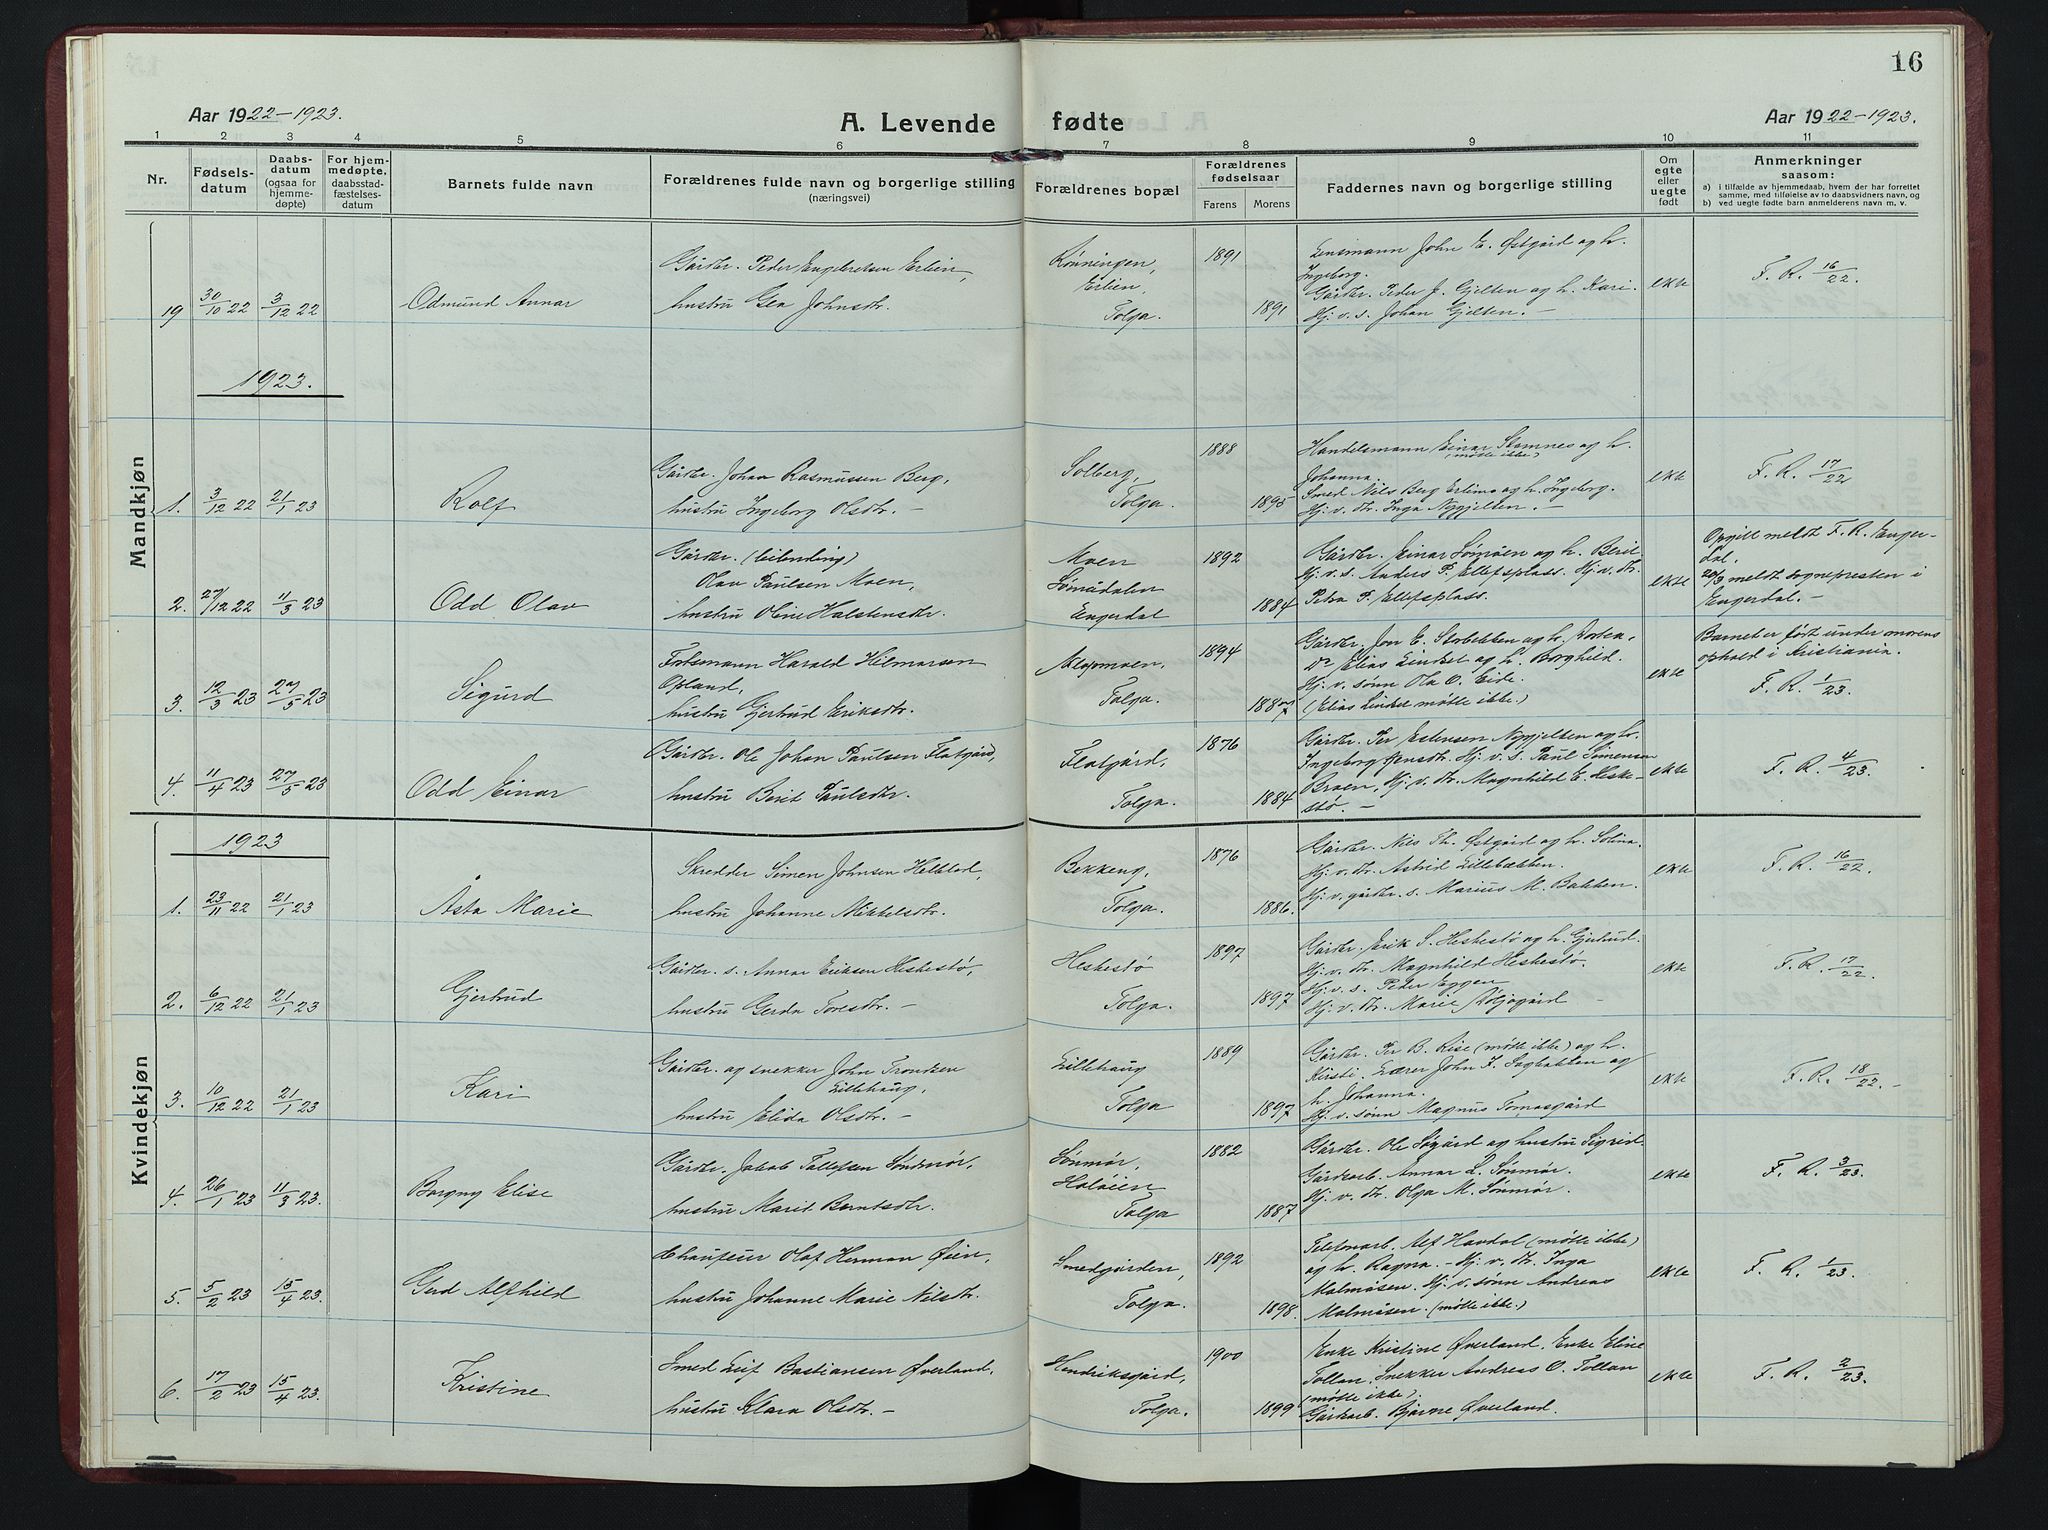 16
Aar 1922-1923.
A. Levende fødte
Aar 1922-1923.
1 2 3 4 5 6 7 8 9 10 11
Nr.
Fødsels-
datum
Daabs-
datum
(ogsaa for
hjemme-
døpte)
For hjem-
medøpte,
daabsstad-
fæstelses-
datum
Barnets fulde navn
Forældrenes fulde navn og borgerlige stilling
(næringsvei)
Forældrenes bopæl
Forældrenes
fødselsaar
Farens Morens
Faddernes navn og borgerlige stilling
Om
egte
eller
uegte
født
Anmerkninger
saasom:
a) i tilfælde av hjemmedaab, hvem der har forrettet
samme, med tilføielse av to daabsvidners navn, og
b) ved uegte fødte barn anmelderens navn m. v.
Mandkjøn
19 30/10 22 3/12 22
Odmund Annar
Gårdbr. Peder Engebretsen Erlien,
hustru Gea Johnsdtr.
Rønningen,
Erlien,
Tolga.
1891
1891
Lensmann John E. Østgård og h.
Ingeborg.
Gårdbr. Peder J. Gjelten og h. Kari.
Hj. v. s. Johan Gjelten. -
ekte
F. R. 16/22.
1923.
1. 3/12 22 21/1 23
Rolf
Gårdbr. Johan Rasmussen Berg,
hustru Ingeborg Olsdtr. -
Solberg,
Tolga.
1888
1895
Handelsmann Einar Stamnes og h.
(møtte ikke)
Johanna.
Smed Nils Berg Erlimo og h. Ingeborg.
Hj. v. dtr. Inga Nygjelten. -
ekte
F. R. 17/22
2. 27/12 22 11/3 23
Odd Olav
Gårdbr. (leilending)
Olav Paulsen Moen,
hustru Oline Halstensdtr.
Moen
Sømådalen
Engerdal
1892
1884
Gårdbr. Einar Sømoen og h. Berit.
Hj. v. s. Anders P. Ellefsplass. Hj. v. dtr.
Petra P. Ellefsplass.
ekte
Opgitt meldt F. R. Enger-
dal.
20/3 meldt sognepresten i
Engerdal. -
3. 12/3 23 27/5 23
Sigurd
Forstmann Harald Hilmarsen
Opland,
hustru Gjertrud Eriksdtr.
Tolga.
1894
1887
Gårdbr. Jon E. Storbekken og h. Dortea.
Do Elias Linket og h. Borghild.
Hj. v. sønn Ola O. Eide.
(Elias Linket møtte ikke.)
ekte
Barnet er født under morens
ophold i Kristiania.
F. R. 1/23.
4. 11/4 23 27/5 23
Odd Einar
Gårdbr. Ole Johan Paulsen Flatgård,
hustru Berit Paulsdtr.
Flatgård,
Tolga.
1876
1884
Gårdbr. Per Estensen Nygjelten og h.
Ingeborg Jensdtr. Hj. v. s. Paul Simensen
Braen, Hj. v. dtr. Magnhild E. Heske-
stø. -
ekte
F. R. 4/23.
Kvindekjøn
1923
1. 23/11 22 21/1 23
Åsta Marie
Skredder Simen Johnsen Helstad,
hustru Johanne Mikkelsdtr.
Bekkeng,
Tolga.
1876
1886.
Gårdbr. Nils Th. Østgård og h. Solina.
Hj. v. dtr. Astrid Lillebakken.
Hj. v. gårdbr. s. Marius M. Bakken.
ekte
F. R. 16/22.
2. 6/12 22 21/1 23
Gjertrud
Gårdbr. s. Annar Eriksen Heskestø,
hustru Gerda Toresdtr. -
Heskestø
Tolga.
1897
1897
Gårdbr. Erik S. Heskestø og h. Gjertrud.
Hj. v. dtr. Magnhild Heskestø.
Hj. v. s. Peder Eggen
Hj. v. dtr. Marie Kløgård -
ekte
F. R. 17/22.
3. 10/12 22 21/1 23
Kari
Gårdbr. og snekker John Trondsen
Lillehaug,
hustru Elida Olsdtr. -
Lillehaug
Tolga
1889
1897
Gårdbr. Per B. Rise (møtte ikke) og h.
Kirsti. Lærer John J. Sagbakken og
h. Johanna.
Hj. v. sønn Magnus Tomasgård
ekte
F. R. 18/22. -
4. 26/1 23 11/3 23.
Borgny Elise
Gårdbr. Jakob Tollefsen Søndmør,
hustru Marit Berntsdtr.
Sønmør,
Holøien
Tolga
1882
1887
Gårdbr. Ole Søgård og hustru Sigrid.
Gårdsarb. Annar L. Sønmør.
Hj. v. dtr. Olga M. Sønmør.
ekte
F. R. 3/23.
5. 5/2 23 15/4 23.
Gerd Alfhild
Chaufeur Olaf Herman Øien,
hustru Johanne Marie Nilsdtr.
Smedgården,
Tolga.
1892
1898.
Telefonarb. Alf Havdal (møtte ikke)
og h. Ragna. - Hj. v. dtr. Inga
Malmåsen. Hj. v. sønn Andreas
Malmåsen. (møtte ikke.)
ekte
F. R. 1/23.
6. 17/2 23 15/4 23.
Kristine
Smed Leif Bastiansen Øverland,
hustru Klara Olsdtr. -
Hendriksgård,
Tolga.
1900
1899
Enke Kristine Øverland. Enke Eline
Tollan. Snekker Andreas O. Tollan
(møtte ikke).
Gårdsarb. Bjarne Øverland.
ekte
F. R. 2/23.